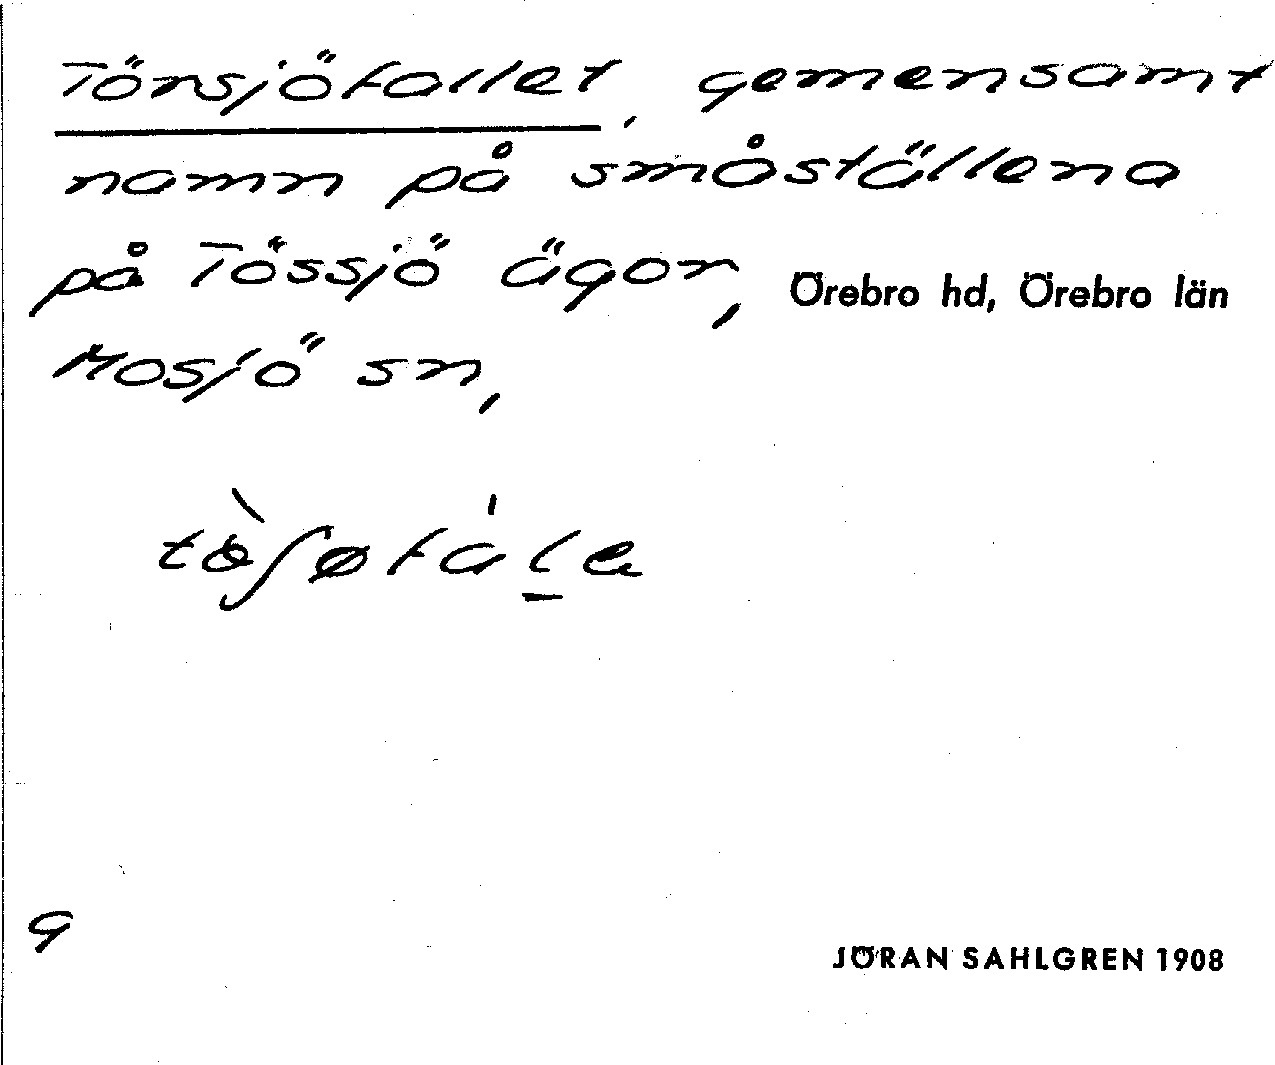 Törsjöfallet, gemensamt
namn på småställena
på Tössjö ägor, Örebro hd, Örebro län
Mosjö sn,
g
JÖRAN SAHLGREN 1908